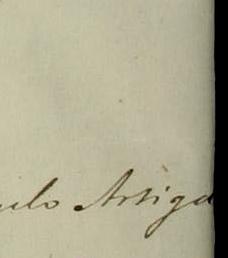 ulo Artiga